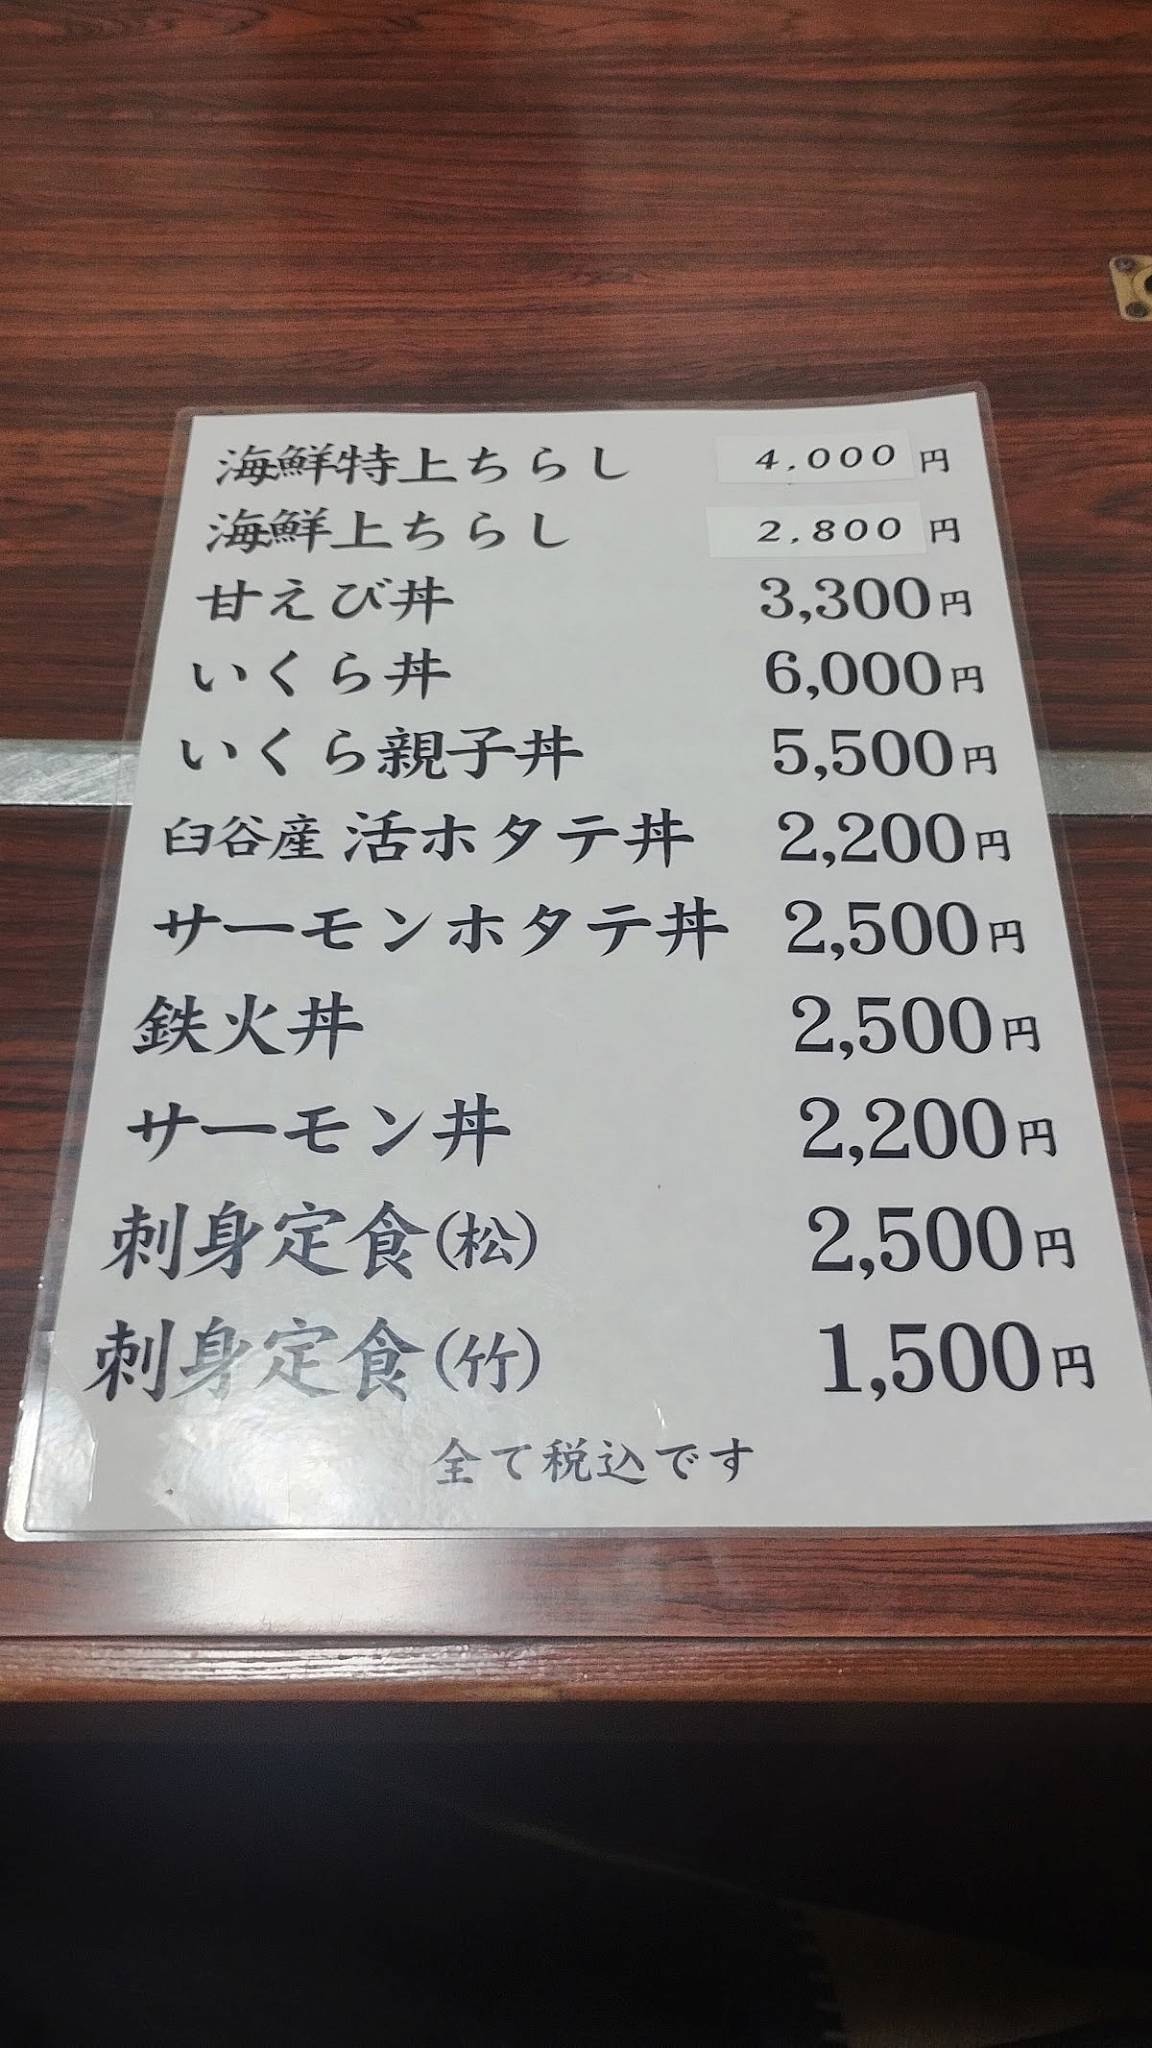 海鮮特上ちらし 4,000円
海鮮上ちらし 2,800円
甘えび丼 3,300円
いくら丼 6,000円
いくら親子丼 5,500円
臼谷産 活ホタテ丼 2,200円
サーモンホタテ丼 2,500円
鉄火丼 2,500円
サーモン丼 2,200円
刺身定食(松) 2,500円
刺身定食(竹) 1,500円
全て税込です